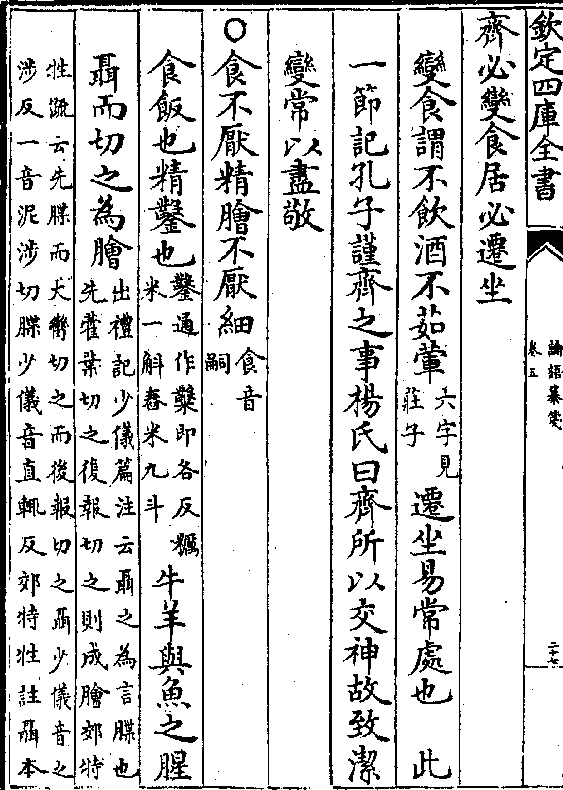 欽定四庫全書
論語纂箋
卷五
二十七
齊必變食居必遷坐
變食謂不飲酒不茹葷
六字見
莊子
遷坐易常處也 此
一節記孔子謹齊之事楊氏曰齊所以交神故致潔
變常以盡敬
○食不厭精膾不厭細
食音
嗣
食飯也精鑿也
鑿通作糳即各反糲
米一斛舂米九斗
牛羊與魚之腥
聶而切之為膾
出禮記少儀篇注云聶之為言牒也
先藿葉切之復報切之則成膾郊特
牲疏云先牒而大臠切之而後報切之聶少儀音之
涉反一音泥涉切牒少儀音直輒反郊特牲註聶本